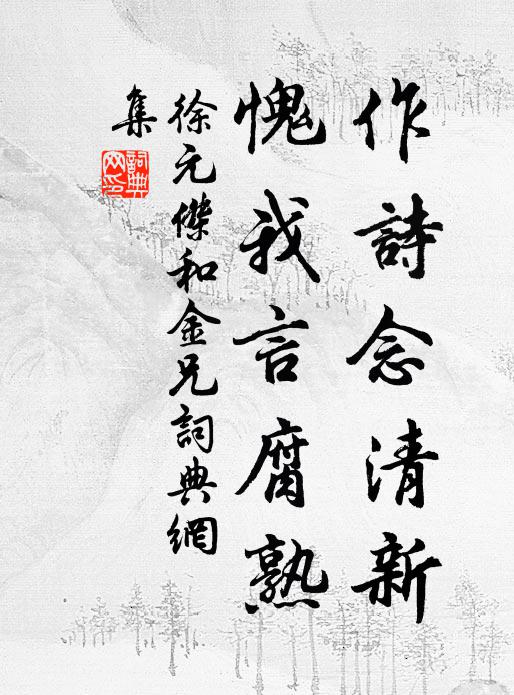 作詩念清新
愧我言腐熟
徐元傑和金兄詞典網
集
詞典網印